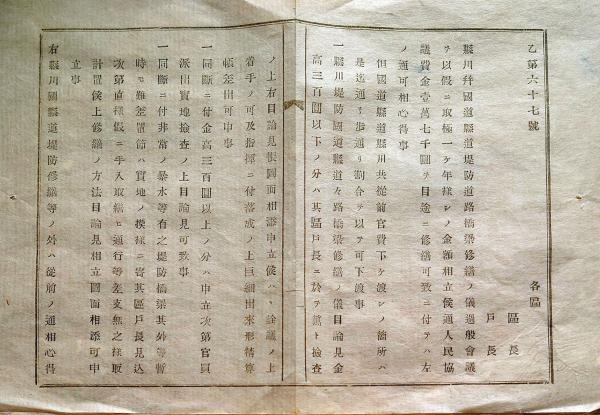 乙第六十七號
各區
區長
戸長
縣川幷國道縣道堤防道路橋梁修繕ノ儀過般會議
ヲ以假ニ取極一ケ年樣シノ金額相立候通人民協
議費金壹萬七千圓ヲ目途ニ修繕可致ニ付テハ左
ノ通可相心得事
但國道縣道縣川共從前官費下ケ渡シノ箇所ハ
是迄通リ歩通リ割合ヲ以テ可下渡事
一縣川堤防國道縣道々路橋梁修繕ノ儀目論見金
高三百圓以下ノ分ハ其區戸長ニ於テ篤ト檢査
ノ上右目論見帳圖面相添申立候ハヽ詮議ノ上
着手ノ可及指揮ニ付落成ノ上巨細出來形精算
帳差出可申事
一同斷ニ付金高三百圓以上ノ分ハ申立次第官員
派出實地檢査ノ上目論見可致事
一同斷ニ付非常ノ暴水等有之堤防橋梁其外等暫
時モ難差置節ハ實地ノ摸樣ニ寄其區戸長見込
次第直樣假ニ手入取繕ヒ通行等差支無之樣取
計置候上修繕ノ方法目論見相立圖面相添可申
立事
右縣川國縣道堤防修繕等ノ外ハ從前ノ通相心得